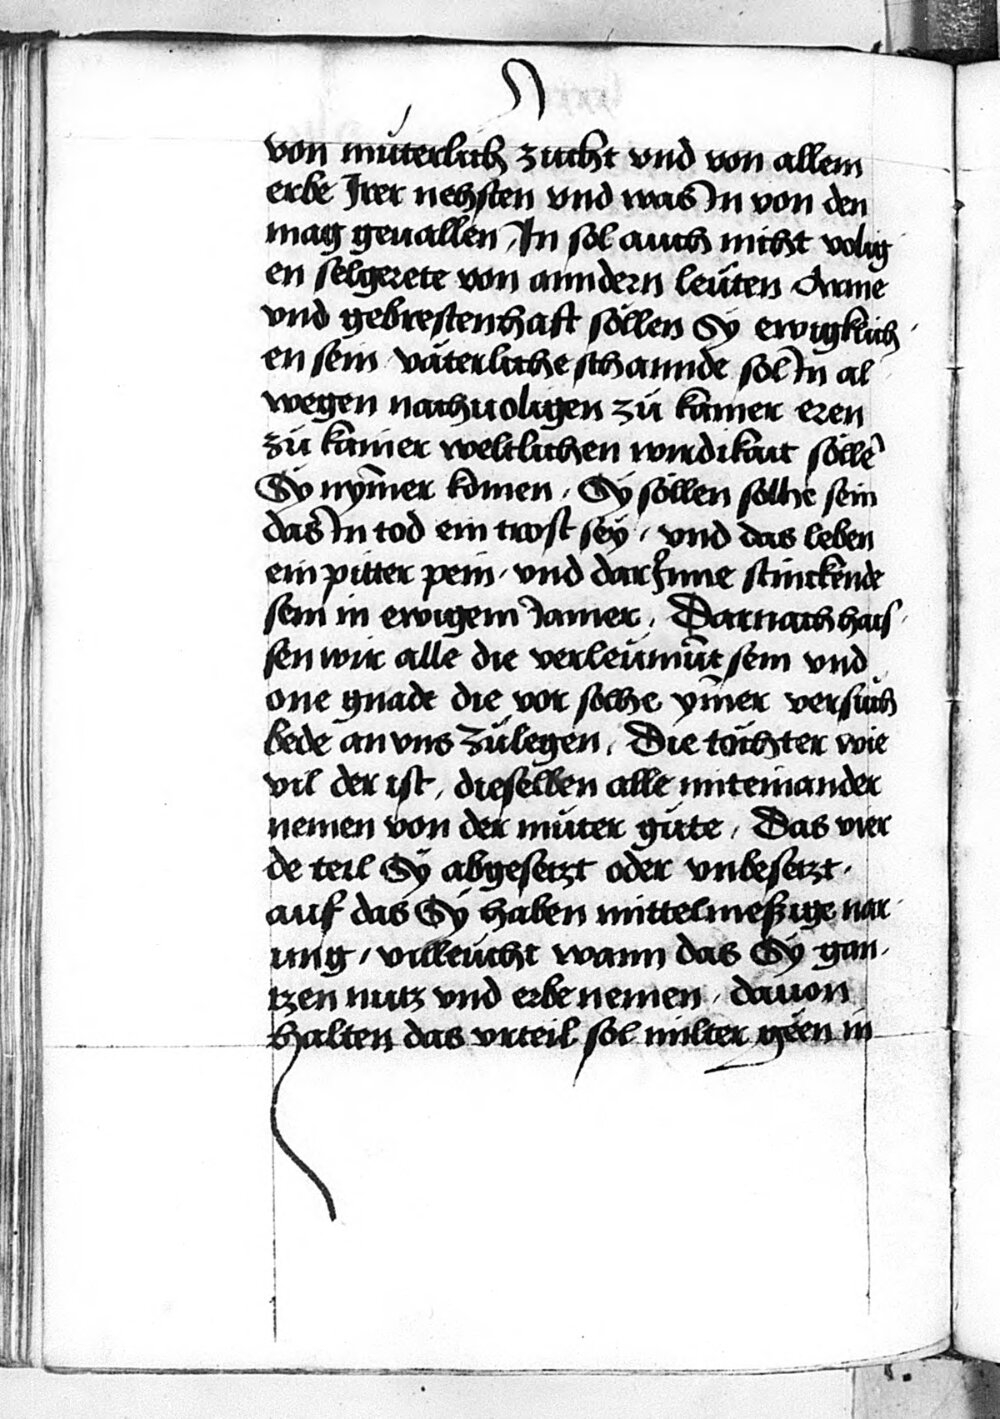 von můterlich zucht vnd von allem
erbe Jrer nehsten vnd was In von den
mag geuallen / In sol auch nicht volig
en selgerete von anndern leüten Arme
vnd gebrestenhaft söllen Sy ewigklich
en sein väterliche schannde sol In al
wegen nachuoligen zů kainer eren
zů kainer weltlichen wirdikait sölle͂
Sÿ nÿm̄er komen / Sÿ söllen solhe sein
das In tod ein trost seÿ / vnd das leben
ein pitter pein / vnd darInne stinckende
sein in ewigem Jamer / Darnach hais
sen wir alle die verleümůt sein vnd
one gnade die vor solhe ym̄er versůch
bede an vns zůlegen / Die töchter wie
vil der ist / dieselben alle miteinander
nemen von der můter gůte / Das vier
de teil Sÿ abgesetzt oder vnbesetzt /
auf das Sÿ haben mittelmeßige nar
ung / villeücht wann das Sÿ gan
tzen nutz vnd erbe nemen / dauon
halten das vrteil sol milter geen in